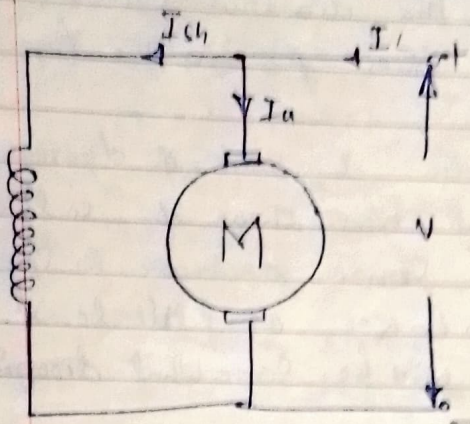 Ish
I
Ia
M
V